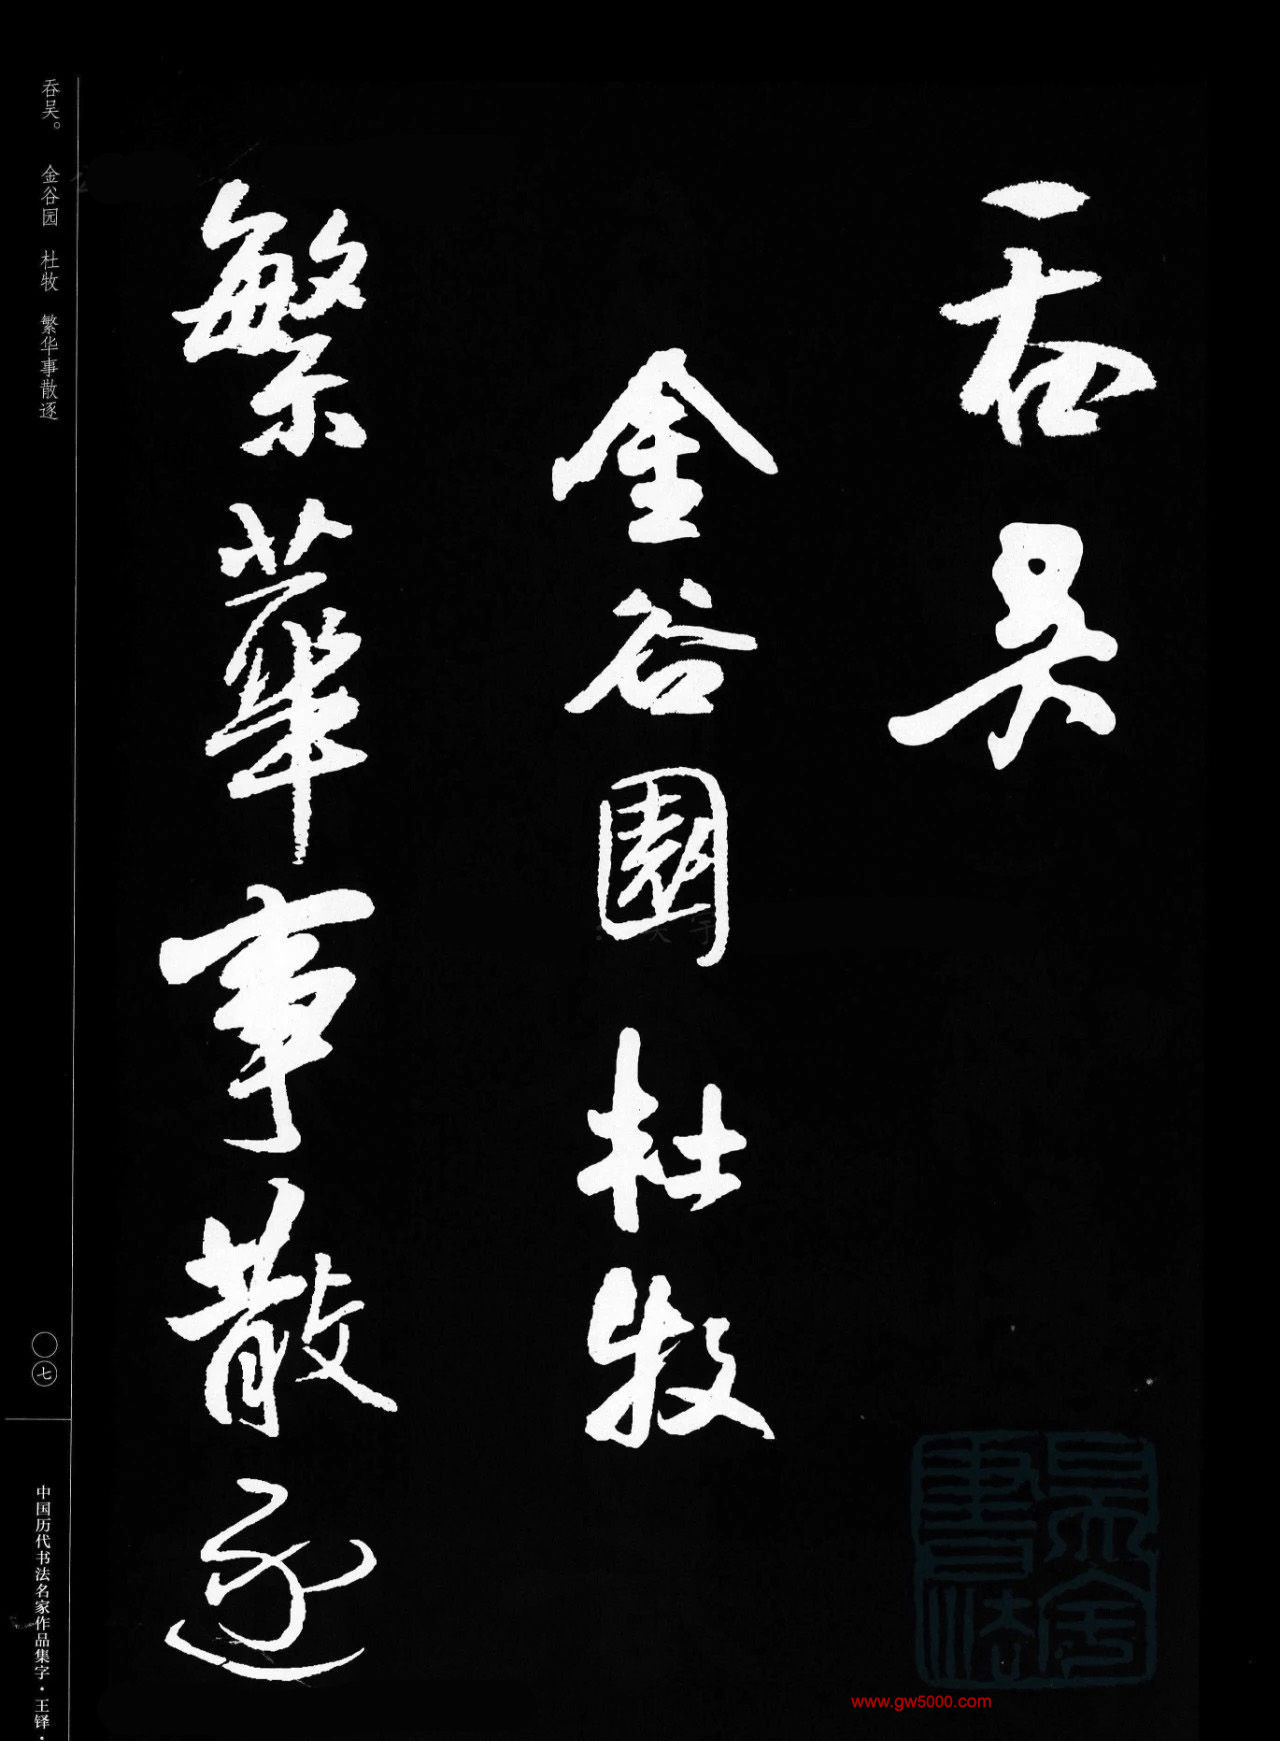 吞吴
金谷園 杜牧
繁華事散逐
吞吴。 金谷园 杜牧 繁华事散逐
〇七
中国历代书法名家作品集字·王铎·
www.gw5000.com